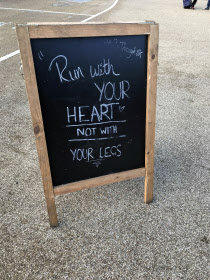 "Run with
YOUR
HEART
NOT WITH
YOUR LEGS